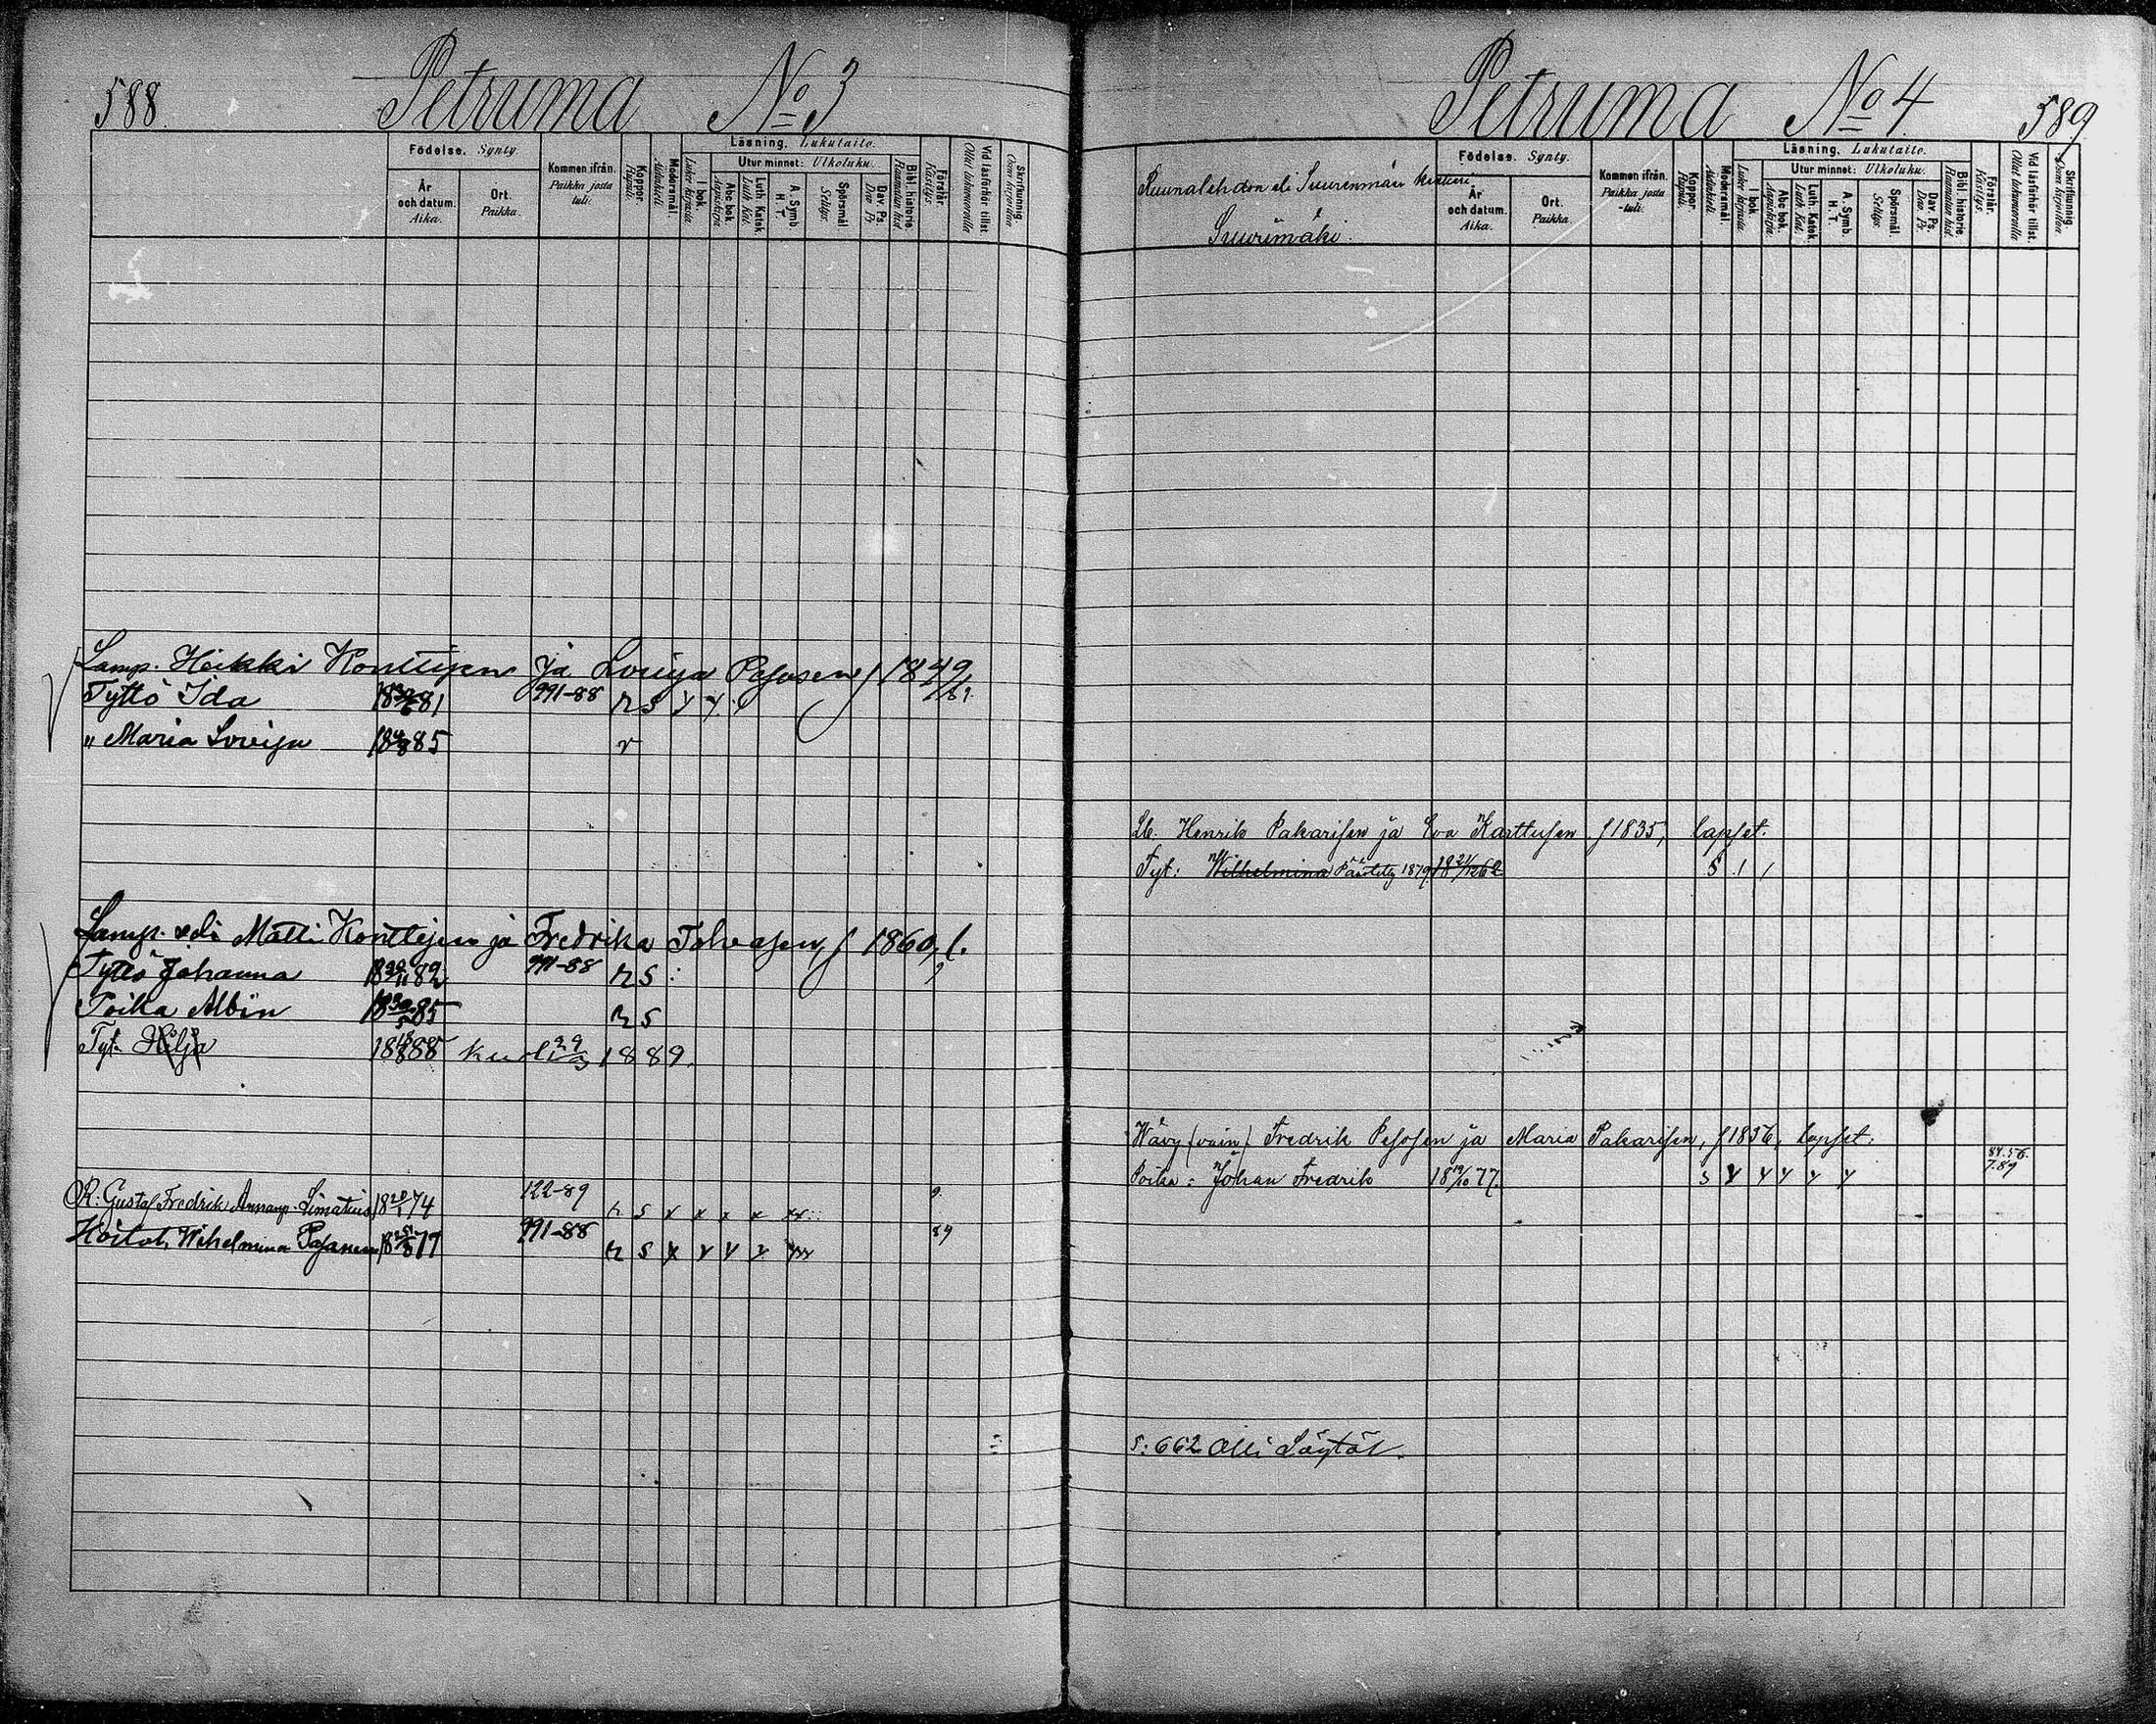 588 Petruma No 3
Födelse. Synty.
År och datum. Aika.
Ort. Paikka.
Kommen ifrån. Paikka josta tuli.
Koppor. Rupuli.
Modersmål. Äidinkieli.
Läsning. Lukutaito.
I bok. Lukee kirjasta.
Utur minnet: Ulkoluku.
Abc bok. Aapiskirja
Luth. Katek. Luth. Kat.
A. Symb. H. T.
Spörsmål. Selitys.
Dav. Ps. Dav. Ps.
Bibl. historie. Raamatun hist.
Förstår. Käsitys.
Vid läsförhör tillst. Ollut lukuvuorolla
Skrifkunnig. Osaa kirjoittaa
Lamp. Heikki Konttijen ja Loviya Pesosen f 1849
Tyttö Ida 18 81 991-88 r s y y
" Maria Lovisa 18 85 r
Lamp. veli Matti Konttijen ja Fredrika f 1860, l.
Tyttö Johanna 18 82 991-88 r s
Poika Albin 18 85 r s
Tyt. Hilja 18 88 kuoli 29/3 1889.
R: Gustaf Fredrik Simatius 18 74 122-89 r s x x x x xx 9.
Hoitol. Wihelmina 18 77 991-88 r s x y y y 89
Petruma No 4 589
eli Suurenmäen
Suurimäki.
Födelse. Synty.
År och datum. Aika.
Ort. Paikka
Kommen ifrån. Paikka josta -tuli.
Koppor. Rupuli.
Modersmål. Äidinkieli
Läsning. Lukutaito.
I bok. Lukee kirjasta.
Utur minnet: Ulkoluku.
Abc bok. Aapiskirja.
Luth. Katek. Luth. Kat.
A. Symb. H. T.
Spörsmål. Selitys.
Dav. Ps. Dav. Ps.
Bibl. historie. Raamatun hist.
Förstår. Käsitys.
Vid läsförhör tillst. Ollut lukuvuorolla
Skrifkunnig. Osaa kirjoittaa
Lb. Henrik Pakarisen ja Eva Karttusen f 1835, lapset.
Tyt: Wilhelmina 1879 18 21/12 62 s
Wävy (vain) Fredrik Pesosen ja Maria Pakarisen, f 1836, lapset.
Poika: Johan Fredrik 18 19/10 77. s y y y y y 84.56. 7.89
s: 662 Olli Löytöl.